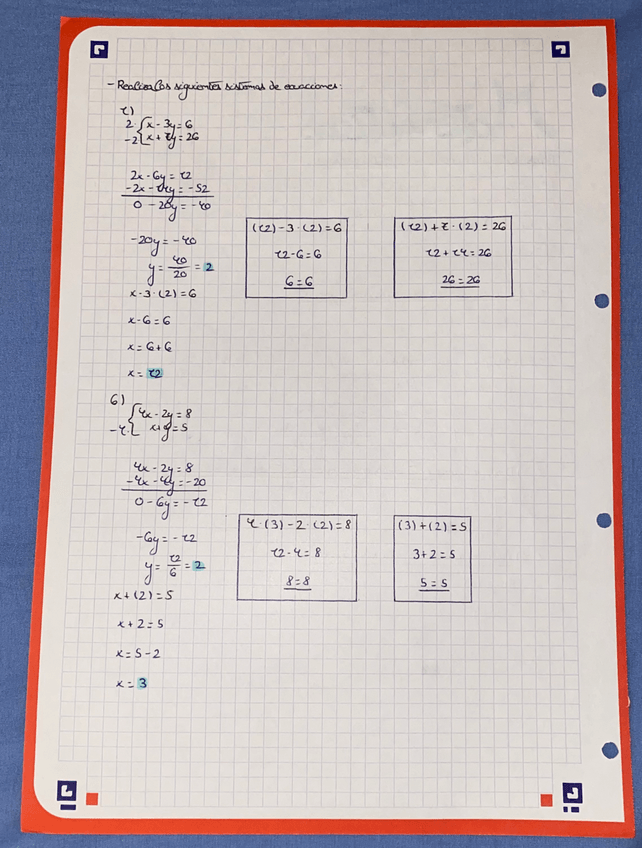 - Realiza los siguientes sistemas de ecuaciones:
1)
2·{x-3y=6
-2{x+7y=26
2x-6y=12
-2x-14y=-52
0-20y=-40
-20y=-40
y=40/20=2
x-3·(2)=6
x-6=6
x=6+6
x=12
(12)-3·(2)=6
12-6=6
6=6
(12)+7·(2)=26
12+14=26
26=26
6)
{4x-2y=8
-4·{x+y=5
4x-2y=8
-4x-4y=-20
0-6y=-12
-6y=-12
y=12/6=2
x+(2)=5
x+2=5
x=5-2
x=3
4·(3)-2·(2)=8
12-4=8
8=8
(3)+(2)=5
3+2=5
5=5